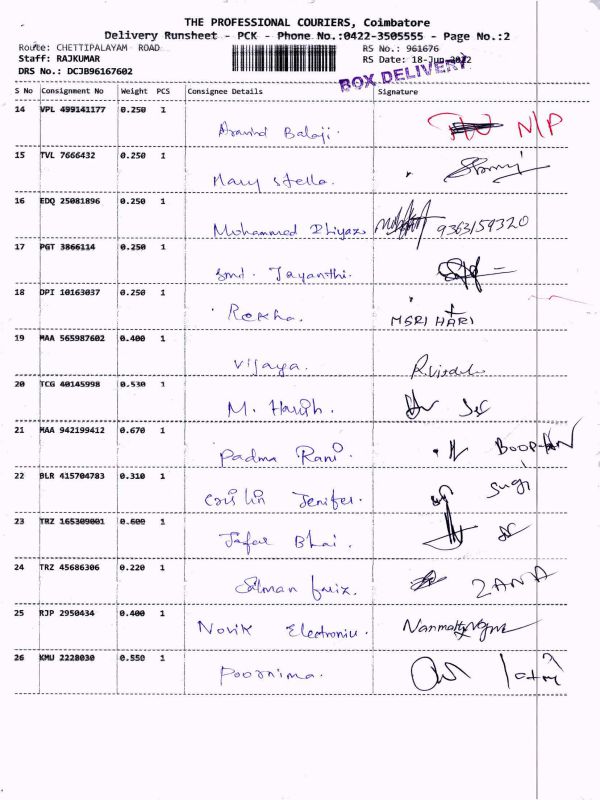 THE PROFESSIONAL COURIERS, Coimbatore
Delivery Runsheet - PCK - Phone No.:0422-3505555 - Page No.:2
Route: CHETTIPALAYAM ROAD RS No.: 961676
Staff: RAJKUMAR RS Date: 18-Jun-2022
DRS No.: DCJB96167602 BOX DELIVERY
S No Consignment No Weight PCS Consignee Details Signature
14 VPL 499141177 0.250 1
Aravind Balaji. N/P
15 TVL 7666432 0.250 1
Mary stella.
16 EDQ 25081896 0.250 1
Mohammed Ilhiyaz 9363159320
17 PGT 3866114 0.250 1
Smt. Jayanthi.
18 DPI 10163037 0.250 1
Rekha. MSRI HARI
19 MAA 565987602 0.400 1
Vijaya.
20 TCG 40145998 0.530 1
M. Harish.
21 MAA 942199412 0.670 1
Padma Rani. BOOPHAN
22 BLR 415704783 0.310 1
Jenifer. Sugi
23 TRZ 165309001 0.600 1
Jafar Bhai.
24 TRZ 45686306 0.220 1
Salman fariz. ZANA
25 RJP 2950434 0.400 1
Novik Electronic.
26 KMU 2228030 0.550 1
Poornima.